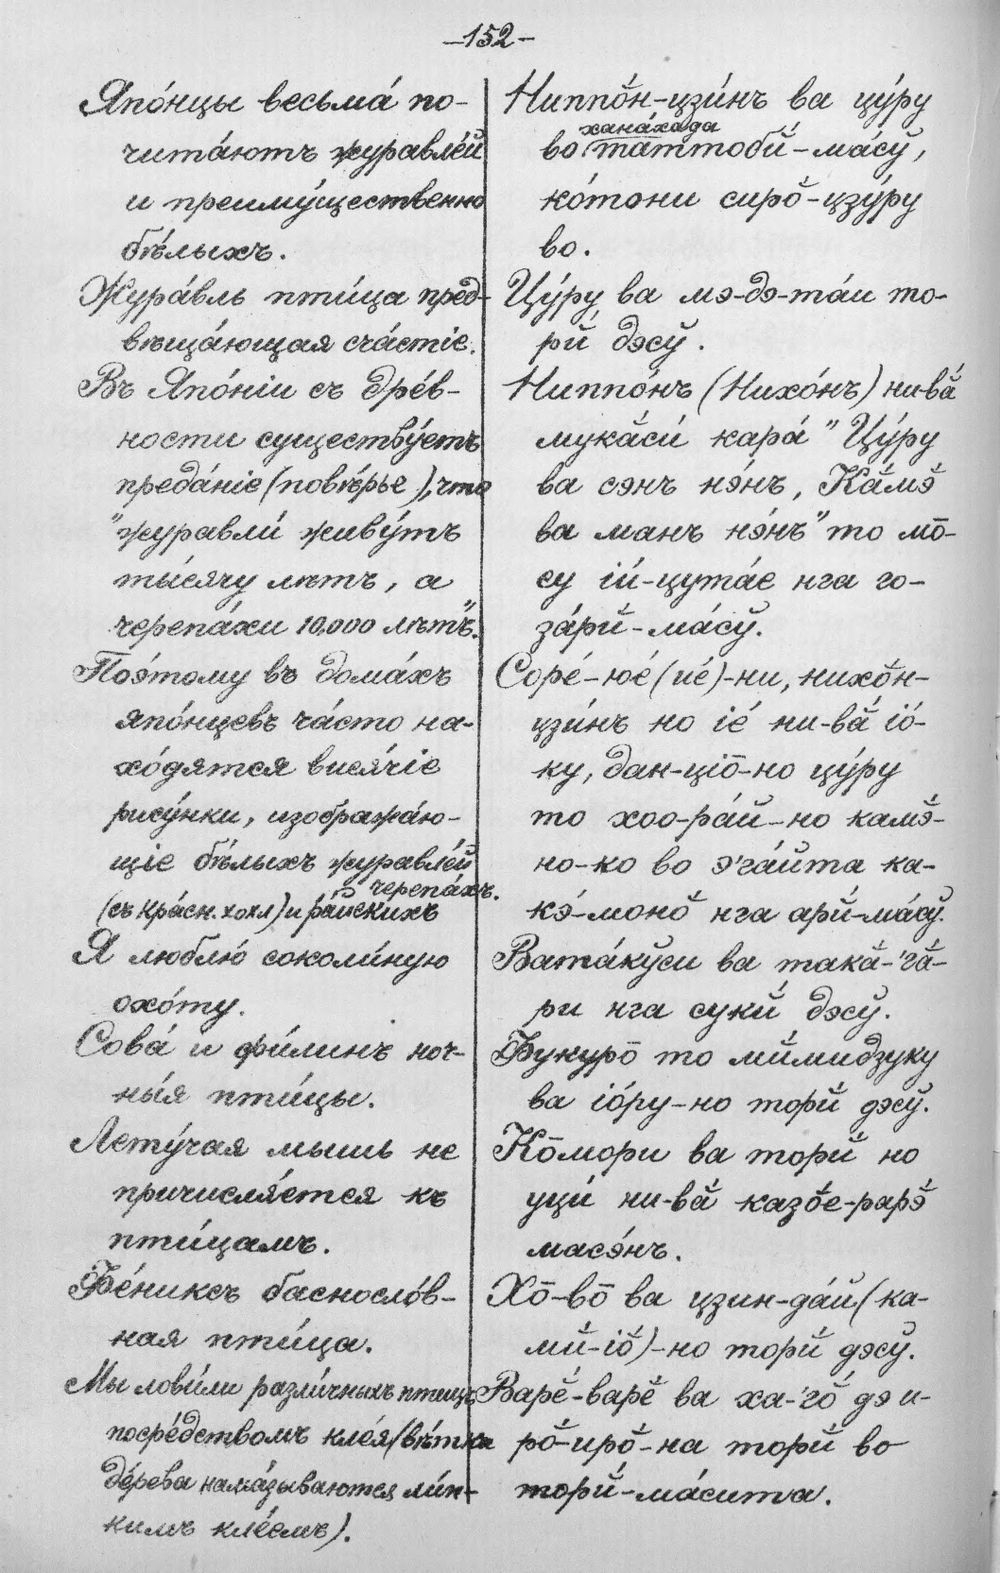 —152—
Япо́нцы весьма́ по-
чита́ютъ журавле́й
и преиму́щественно
бѣ́лыхъ.
Жура́вль пти́ца пред-
вѣща́ющая сча́стіе.
Въ Япо́ніи съ дре́в-
ности существу́етъ
преда́ніе (повѣ́рье), что
"журавли́ живу́тъ
ты́сячу лѣтъ, а
черепа́хи 10.000 лѣтъ".
Поэ́тому въ дома́хъ
япо́нцевъ ча́сто на-
хо́дятся вися́чіе
рису́нки, изобража́ю-
щіе бѣ́лыхъ журавле́й
(съ кра́сн. хохл) и ра́йскихъ черепа́хъ.
Я люблю́ соколи́ную
охо́ту.
Сова́ и фи́линъ ноч-
ны́я пти́цы.
Лету́чая мышь не
причисля́ется къ
пти́цамъ.
Фе́никсъ баснослов-
ная пти́ца.
Мы лови́ли разли́чныхъ птицъ
посре́дствомъ кле́я (вѣ́тки
де́рева нама́зываются ли́п-
кимъ кле́емъ).
Ниппо̆́н-цзи́нъ ва цу́ру
во ханаха́да таттобй́-ма́сӯ̆,
ко́тони сиро̆́-цзу́ру
во.
Цу́ру ва мэ-дэ-та́и то-
рй́ дэсў.
Ниппо́нъ (Нихо́нъ) ни-вӑ́
мукӑси́ кара́ "Цу́ру
ва сэнъ нэ́нъ, Ка́мэ̆
ва манъ нэ́нъ" то мо̄-
су ій-цута́е нга го-
за́рй-ма́сў.
Соре́-юе́ (іе́)-ни, нихо̆́н-
цзи́нъ но іе́ ни-вӑ́ іо́-
ку, дан-ціо̄-но цу́ру
то хоо-ра́й-но камэ̆́-
но-ко во э'га́йта ка-
кэ́-моно̆ нга арй́-ма́сў.
Вата́кўси ва такӑ-'гӑ́-
ри нга сукй́ дэсў.
Фукуро̄ то мй́мидзуку
ва іо́ру-но торй́ дэсў.
Ко̄мори ва торй́ но
уци́ ни-вӑ́ казо̆́е-рарэ̆́
масэ́нъ.
Хо̄-во̄ ва цзин-да́й (ка-
мй́-іо̆)-но торй́ дэсў.
Варӗ́-варӗ́ ва ха-'го̆́ дэ и-
ро̆́-иро̆́-на торй́ во
торй́-ма́сита.